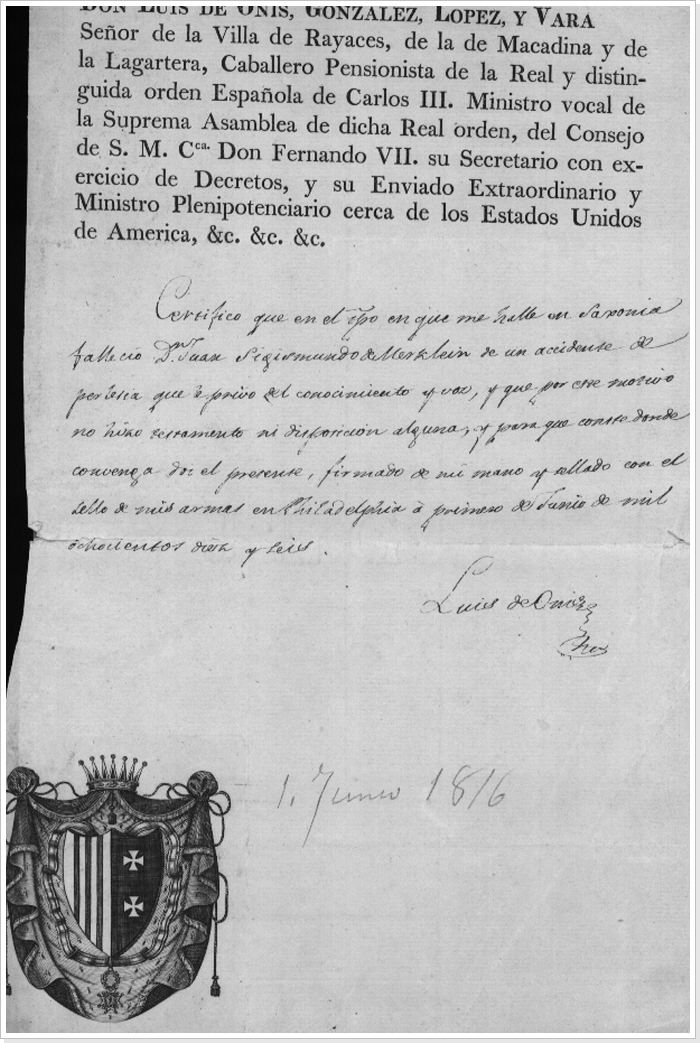 DON LUIS DE ONIS, GONZALEZ, LOPEZ, Y VARA
Señor de la Villa de Rayaces, de la de Macadina y de
la Lagartera, Caballero Pensionista de la Real y distin-
guida orden Española de Carlos III. Ministro vocal de
la Suprema Asamblea de dicha Real orden, del Consejo
de S. M. Cca. Don Fernando VII. su Secretario con ex-
ercicio de Decretos, y su Enviado Extraordinario y
Ministro Plenipotenciario cerca de los Estados Unidos
de America, &c. &c. &c.
Certifico que en el tpo en que me halle en Saxonia
fallecio Dn. Juan Sigismundo de Merklein de un accidente de
perlesia que le privo del conocimiento y voz, y que por este motivo
no hizo testamento ni disposición alguna, y para que conste donde
convenga doi el presente, firmado de mi mano y sellado con el
sello de mis armas en Philadelphia á primero de Junio de mil
ochocientos diez y seis.
Luis de Onis
1. Junio 1816